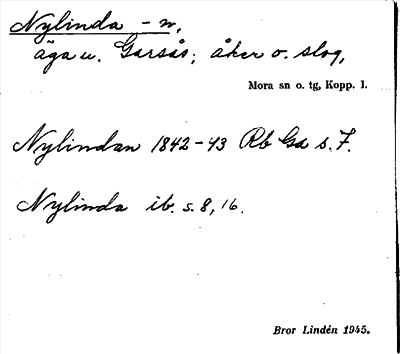 Nylinda -n,
äga u. Garsås; åker o. slog,
Mora sn o. tg, Kopp. l.
Nylindan 1842-43 Rb Ga s. 7.
Nylinda ib. s. 8, 16.
Bror Lindén 1945.